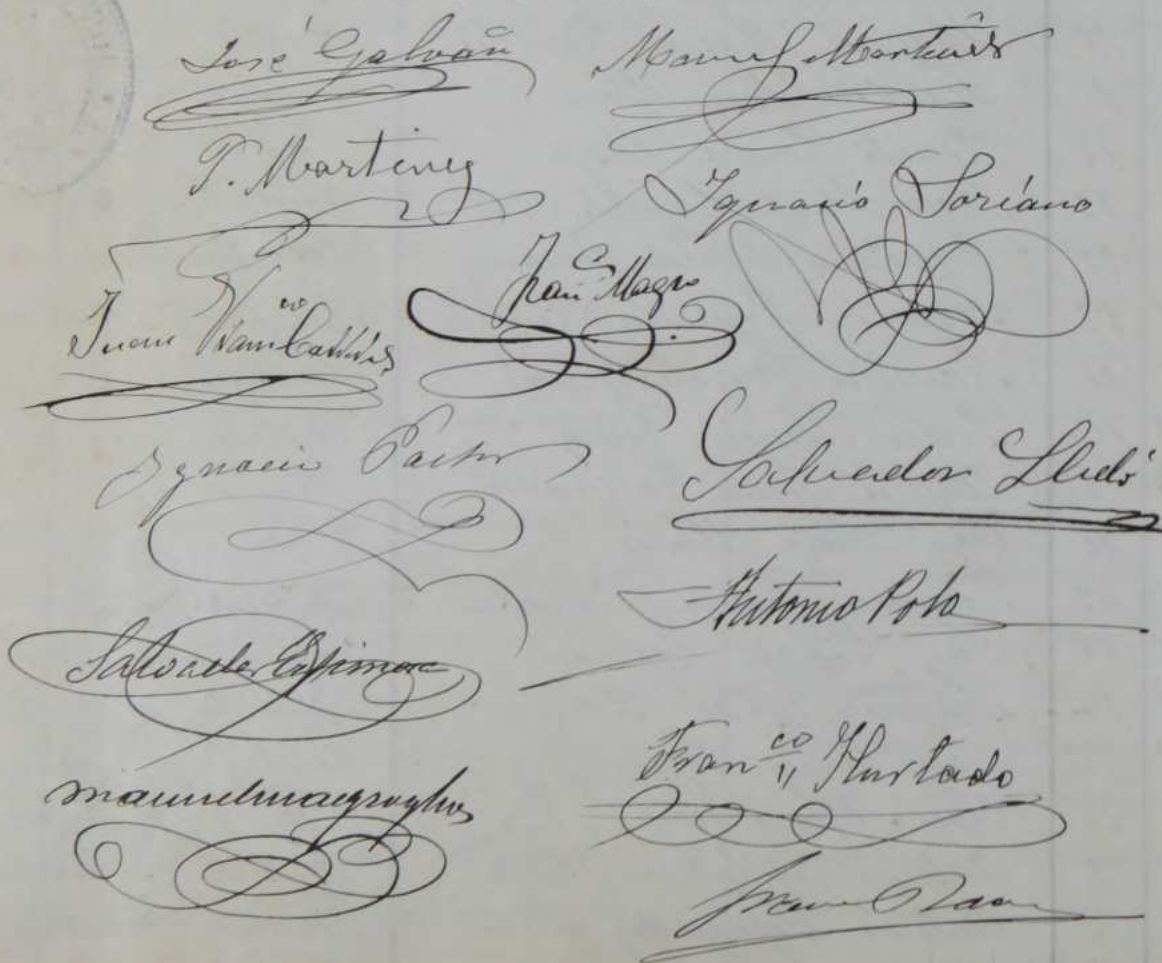 José Galvañ
Manuel Martínez
P. Martinez
Ignacio Soriano
Juan
Fran^co Magro
Ignacio Pastor
Salvador Lledó
Antonio Polo
Salvador Espinosa
Fran^co Hurtado
manuelmagro